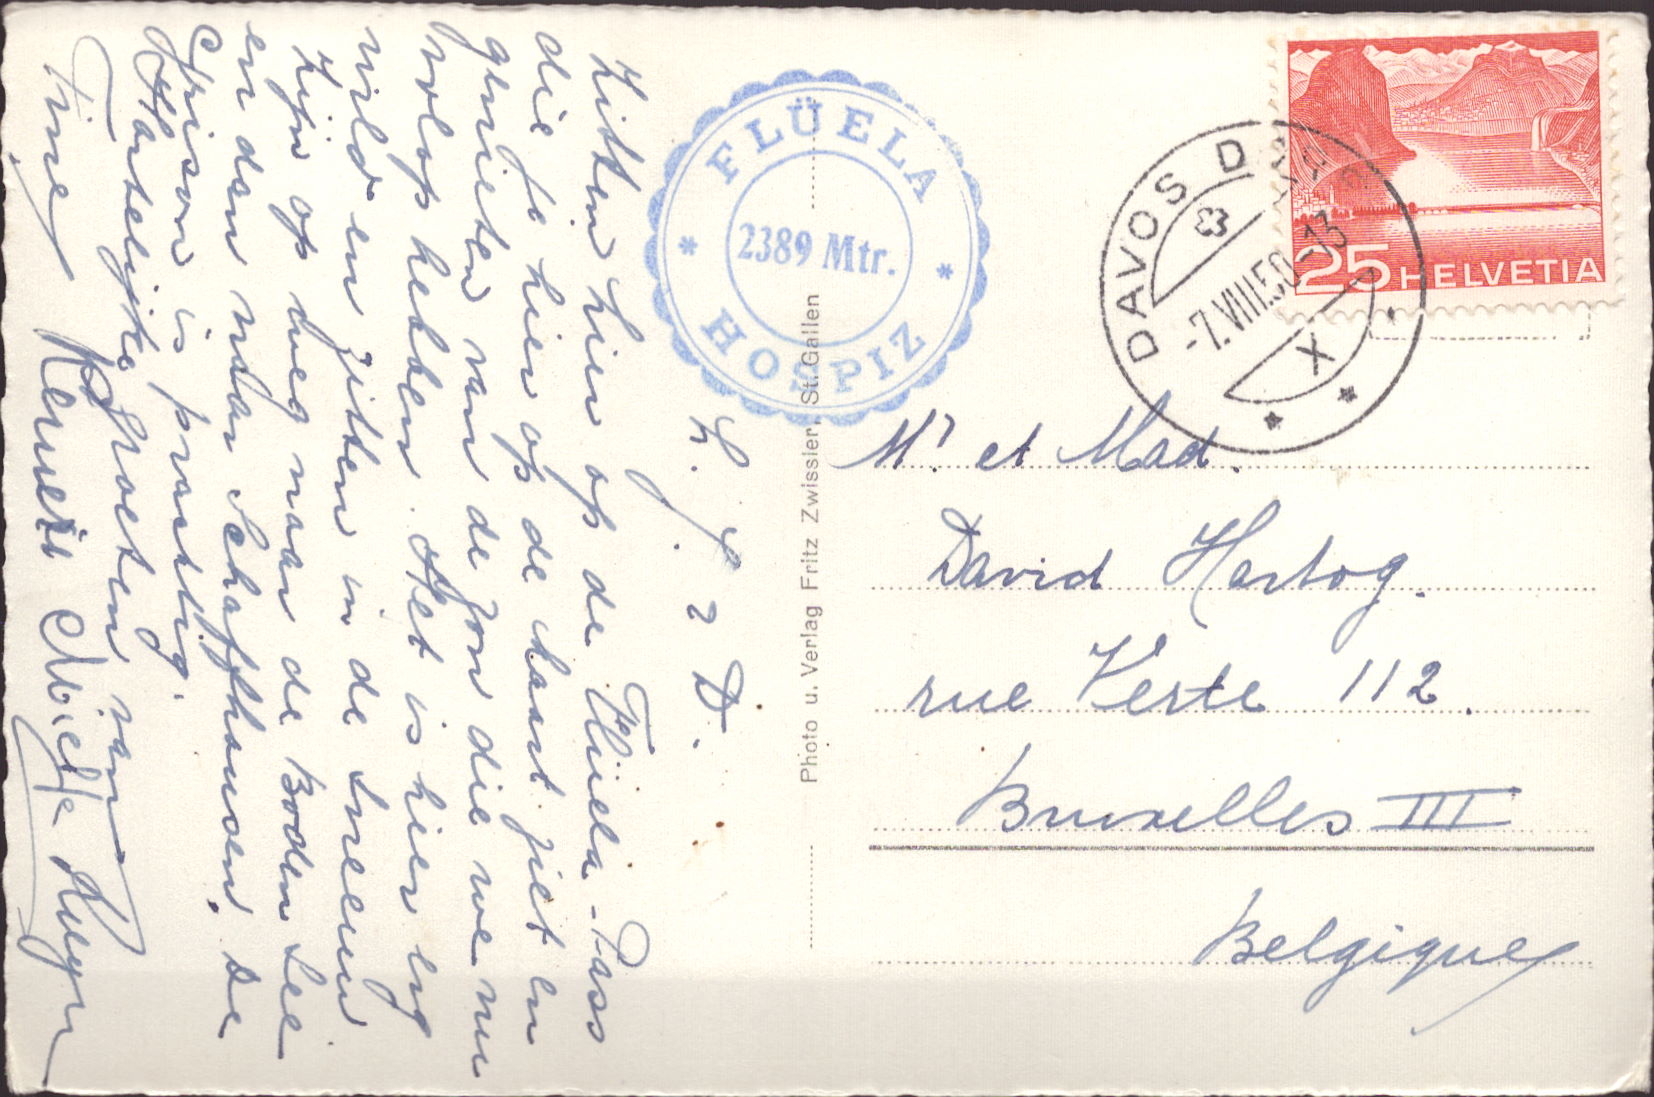 L. J. & D.
Zitten hier op de Flüela-Pass
die je hier op de kaart ziet en
genieten van de zon die we nu
volop hebben. Het is hier erg
wild en zitten in de sneeuw
Zijn op weg naar de Boden See
en dan naar Schaffhausen. De
Spison is prachtig.
Hartelijke Groeten van
Tiney
FLÜELA
2389 Mtr.
HOSPIZ
Photo u. Verlag Fritz Zwissler, St. Gallen
25 HELVETIA
DAVOS D
-7.VIII.50-13
X
Mr et Mad.
David Hartog.
rue Verte 112.
Bruxelles III
Belgique